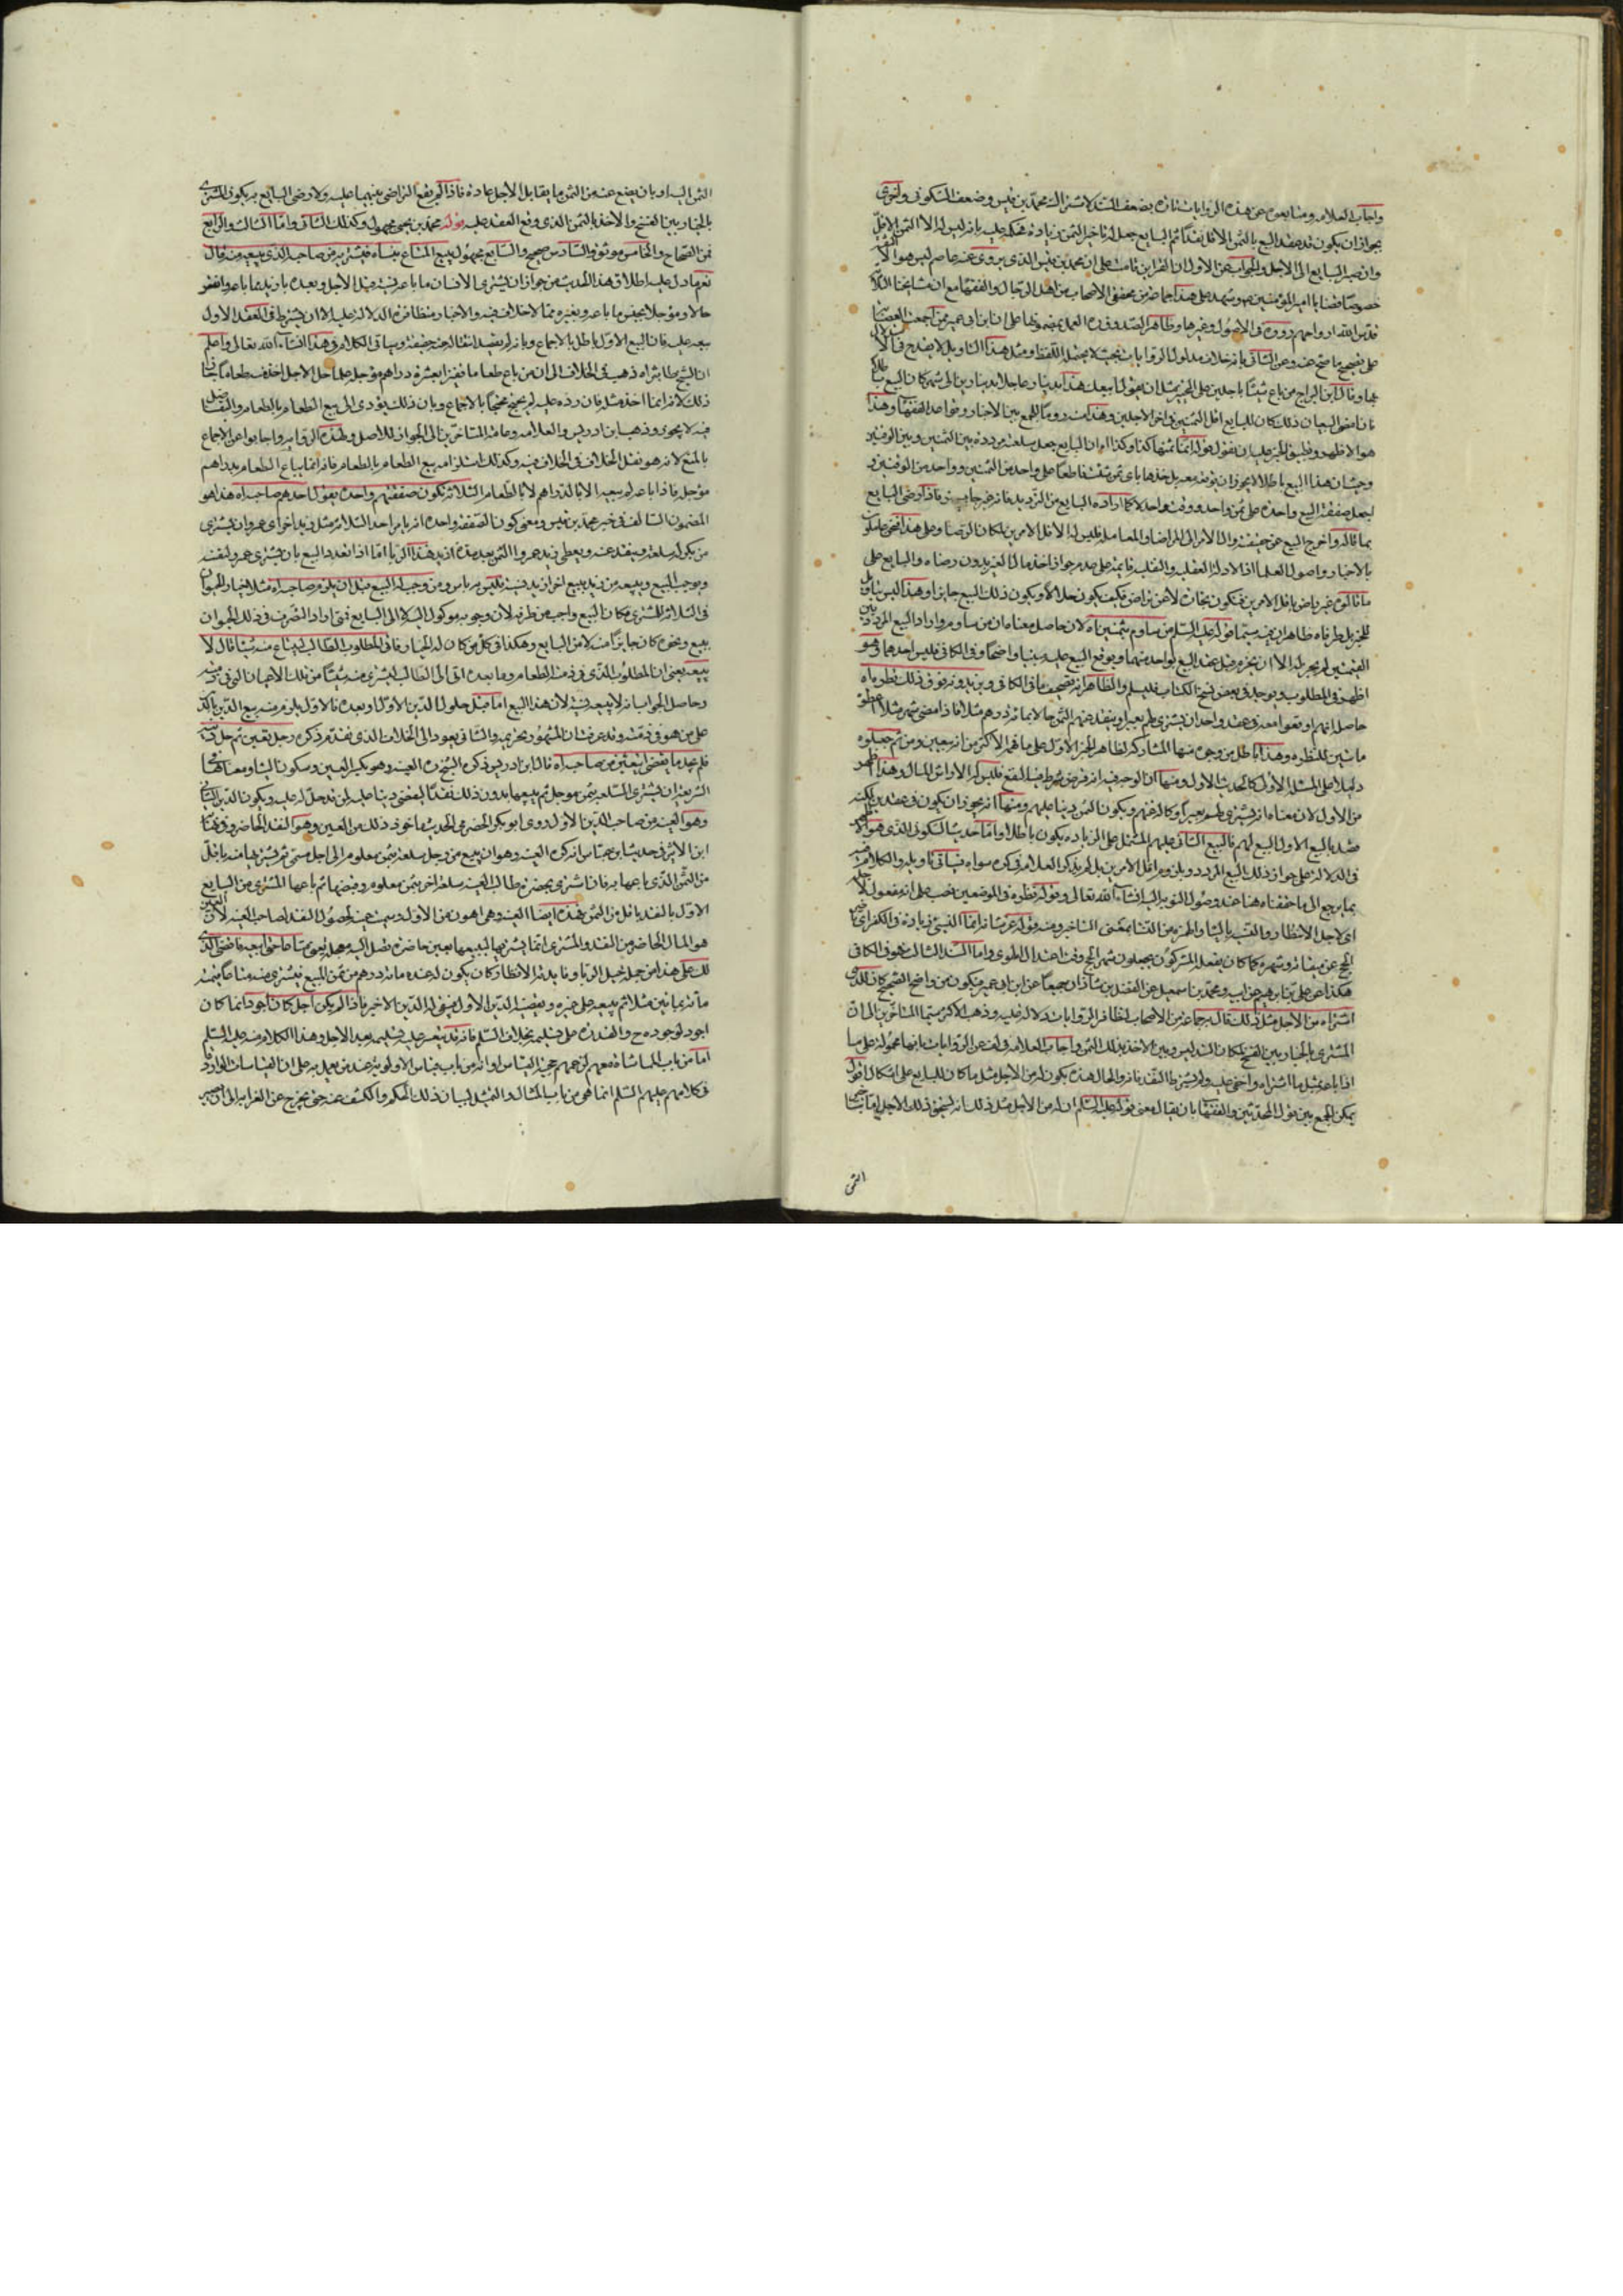 واجاب العلامه ومتابعوه عن هذه الروايات تارة بضعف السند لاشتراك محمد بن قيس وضعف السكونى واخرى
بجواز ان يكون قد عقد البيع بالثمن الاقل نقدا ثم البايع جعل له تاخير الثمن بزيادة فحكم عليه بانه ليس له الا الثمن الاقل
وان صبر البايع الى الاجل والجواب عن الاول ان القراين قامت على ان محمد بن قيس الذى يروى عنه عاصم ليس هو الا الثقة
خصوصا قضايا امير المؤمنين وشهد على هذا جماعة من محققى الاصحاب من اهل الرجال والفقها مع ان مشايخنا الثلاثة
قدس الله ارواحهم رووه فى الاصول وغيرها وظاهر الصدوق العمل بمضمونها على ان ابن ابى عمير ممن اجمعت العصابة
على تصحيح ما صح عنه وعن الثانى بانه خلاف مدلول الروايات بحيث لا يحتمله اللفظ ومثل هذا التاويل لا يقدح فى الاستدلال
بها وقال ابن البراج من باع شيئا باجلين على التخيير مثل ان يقول ابيعك هذا بدينار عاجلا بدينارين الى شهر كان البيع باطلا
فان امضى البيعان ذلك كان للبايع اقل الثمنين فى اخر الاجلين وهذا منه روما للجمع بين الاخبار وقواعد الفقها وهذا
هو الاظهر وتطبيق الخبر عليه ان نقول قوله انما ثمنها كذا وكذا اه ان البايع جعل سلعته مرددة بين الثمنين وبين الوقتين
وحيث ان هذا البيع باطلا لا يجوز ان يوقعه بعد بل خذها باى ثمن شئت قاطعا على واحد من الثمنين وواحد من الوقتين و
اجعل صفقة البيع واحدة على ثمن واحد ووقت واحد لا كما اراده البايع من الترديد فانه غير جايز فاذا رضى البايع
بما قاله واخرج البيع عن حقيقته وال الامر الى التراضى والمعاملة فليس له الا اقل الامرين لمكان الرضا وعلى هذا
بالاخبار واصول العلما اذ الادلة العقلية والنقلية قايمة على عدم جواز اخذ مال الغير بدون رضاه والبايع على
ما قالوه غير راض باقل الامرين فتكون تجارة لا عن تراض فكيف يكون حلالا ويكون ذلك البيع جايزا وهذا ليس تاويلا
للخبر بل طرفاه ظاهران فيه سيما قوله عليه السلم من ساوم بثمنين اه لان حاصل معناه ان من ساوم واراد البيع المردد بين
القيمتين لم يجز له الا ان يجزم قبل عقد البيع بواحد منهما ويوقع البيع عليه بينا واضحا وفى الكافى فليس احدهما وهو
اظهر فى المطلوب ويوجد فى بعض نسخ الكتاب فليسلم والظاهر انه تصحيف ما فى الكافى ويزيدونه فوق ذلك نظره اه
حاصله انهم اوقعوا معه فى عقد واحد ان يشترى لهم بعيرا وينقد عنهم الثمن حالا بمائة درهم مثلا فاذا مضى شهر مثلا اعطوه
مائتين للنظره وهذا باطل من وجوه منها المشاركة لظاهر الخبر الاول على ما فهمه الاكثر من انه بيعين ومن ثم جعلوه
دليلا على المسئلة الاولى كالحديث الاول ومنها ان الوجه فيه انه قرض شرط فيه النفع فليس له الا راس المال وهذا اظهر
من الاول لان معناه انه يشترى لهم بعيرا وكالة عنهم ويكون الثمن دينا عليهم ومنها انه يجوز ان يكون فى عقدين لكنه
عقد بالبيع الاول البيع لهم فالبيع الثانى عليهم المشتمل على الزياده يكون باطلا واما حديث السكونى الذى هو اظهر
فى الدلالة على جواز ذلك البيع المردد ويلزمه اقل الامرين بل لم يذكر العلامه فى كره سواه فسياتى تاويله والكلام فيه
بما يرجع الى ما حققناه هنا عند وصول النوبة اليه انشاء الله تعالى وقوله نظره فى الموضعين نصب على انه مفعول لاجله
اى لاجل الانظار
الحج عن ميقاته وشهره كما كان يفعله المشركون يجعلون شهر الحج وقت اعتدال الهوى واما السند الثالث فهو فى الكافى
هكذا عن على بن ابرهيم عن ابيه ومحمد بن اسمعيل عن الفضل بن شاذان جميعا عن ابن ابى عمير فيكون من واضح الصحيح كان للذى
اشتراه من الاجل مثل ذلك قال به جماعة من الاصحاب لظافر الروايات بدلالة عليه وذهب الاكثر سيما المتاخرين الى ان
المشترى بالخيار بين الفسخ لمكان التدليس وبين الاخذ بذلك الثمن واجاب العلامه فى لف عن الروايات بانها محمولة على ما
اذا باعه بمثل ما اشتراه واخفى عليه ولم يشترط النقد فانه والحال هذه يكون له من الاجل مثل ما كان للبايع على اشكال اقول
يمكن الجمع بين قول المحدثين والفقها بان يقال معنى قوله عليه السلم ان له من الاجل مثل ذلك انه يستحق ذلك الاجل اما
الثمن
الثمن اليه او بان يضع عنه من الثمن ما يقابل الاجل عادة فاذا لم يقع التراضى بينهما عليه ولا رضى البايع به يكون المشترى
بالخيار بين الفسخ والاخذ بالثمن الذى وقع العقد عليه قوله محمد بن يحيى مجهول وكذلك الثانى واما الثالث والرابع
فمن الصحاح والخامس موثق والسادس صحيح والسابع مجهول يبيع المتاع بنساء فيشتريه من صاحبه الذى يبيعه منه قال
نعم اه دل عليه اطلاق هذا الحديث من جواز ان يشترى الانسان ما باعه نسية قبل الاجل وبعده بازيد مما باعه وانقص
حالا ومؤجلا بجنس ما باعه وبغيره مما لا خلاف فيه والاخبار متظافرة الدلالة عليه الا ان يشترط فى العقد الاول
بيعه عليه فان البيع الاول باطل بالاجماع وبانه لم يقصد انتقاله عنه حقيقة وسياتى الكلام فى هذا انشاء الله تعالى واعلم
ان الشيخ طاب ثراه ذهب فى الخلاف الى ان من باع طعاما قفيزا بعشرة دراهم مؤجله فلما حل الاجل اخذ منه طعاما جاز
ذلك لانه انما اخذ مثله فان زاده عليه لم يجز محتجا بالاجماع وبان ذلك يؤدى الى بيع الطعام بالطعام والتفاضل
فيه لا يجوز وذهب ابن ادريس والعلامه وعامة المتاخرين الى الجواز للاصل ولهذه الروايه واجابوا عن الاجماع
بالمنع لانه هو نقل الخلاف فى الخلاف فيه وكذلك استلزامه بيع الطعام بالطعام فانه انما يباع الطعام بدراهم
مؤجله فاذا باعه لم يبعه الا بالدراهم لا بالطعام الثلاثة تكون صفقتهم واحدة يقول احدهم صاحبه اه هذا هو
المضمون السالف فى خبر محمد بن قيس ومعنى كون الصفقة واحده انه يامر احد الثلاثة مثل زيد اخر اى عمرو ان يشترى
من بكر له سلعة وينقد عنه ويعطى زيد عمروا الثمن بعد مدة ازيد هذا الربا اما اذا تعدد البيع بان يشترى عمرو لنفسه
ويوجب البيع ويبيعه من زيد ببيع اخر ازيد نسية فليس به باس ومن وجب له البيع قبل ان يلزم صاحبه اه مثلا خيار الحيوان
فى الثلاثة للمشترى فكان البيع واجب من طرفه لان وجوبه موكول اليه لا الى البايع فمتى اراد التصرف فى ذلك الحيوان
ببيع ونحوه كان جايزا منه لا من البايع وهكذا فى كل من كان له الخيار فاتى المطلوب الطالب ليبتاع منه شيئا قال لا
يبيعه يعنى ان المطلوب الذى فى ذمته الطعام وما بعده اتى الى الطالب ليشترى منه شيئا من تلك الاعيان التى فى ذمته
وحاصل الجواب انه لا يبيعه نسية لان هذا البيع اما قبل حلول الدين الاول او بعده فالاول يلزم منه بيع الدين بالدين
على من هو فى ذمته وقد عرفت ان المشهور تحريمه والثانى يعود الى الخلاف الذى تقدم ذكره رجل يعين ثم حل دينه
فلم يجد ما يقضى ايتعين من صاحبه اه قال ابن ادريس ذكره الشيخ ره العينه وهو بكسر العين وسكون اليا ومعناها فى
الشريعة ان يشترى السلعة بثمن موجل ثم يبيعها بدون ذلك نقدا ليقضى دينا عليه لمن قد حل له عليه ويكون الدين الثانى
وهو العينه من صاحب الدين الاول روى ابو بكر الحضرمى الحديث ماخوذ ذلك من العين وهو النقد الحاضر وفى نهاية
ابن الاثير فى حديث ابن عباس انه كره العينه وهو ان يبيع من رجل سلعة بثمن معلوم الى اجل مسمى ثم يشتريها منه باقل
من الثمن الذى باعها به فان اشترى بحضرة طالب العينه سلعة اخر بثمن معلوم وقبضها ثم باعها المشترى من البايع
الاول بالنقد باقل من الثمن فهذه ايضا العينه وهى اهون من الاول وسميت عينه لحصول النقد لصاحب العينه لان العين
هو المال الحاضر من النقد والمشترى انما يشتريها ليبيعها بعين حاضرة تصل اليه معجله يعنى متاعا حتى ابيعه فاقضى الذى
لك على هذا من جملة حيل الربا وفايدته الانظار كان يكون له عنده مائة درهم من ثمن المبيع فيشترى منه متاعا قيمته
مائة بمائتين مثلا ثم يبيعه على غيره ويقبضه الدين الاول فيبقى له الدين الاخير فاذا لم يكن اجل كان اجود انما كان
اجود لوجوده ح والقدرة على تسليمه بخلاف السلم فانه قد يتعسر عليه تسليمه بعد الاجل وهذا الكلام منه عليه السلم
اما من باب المماشاة معهم لزعمهم حجية القياس او انه من باب قياس الاولويه عند من يعمل به على ان القياسات الوارده
فى كلامهم عليهم السلم انما هى من باب المثال والتمثيل لبيان ذلك الحكم والكشف عنه حتى يخرج عن الغرابه الى